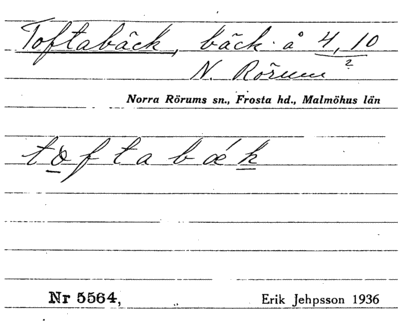 Toftabäck, bäck å 4,10
2
N. Rörum
Norra Rörums sn., Frosta hd., Malmöhus län
toftabæk
Nr 5564,
Erik Jehpsson 1936